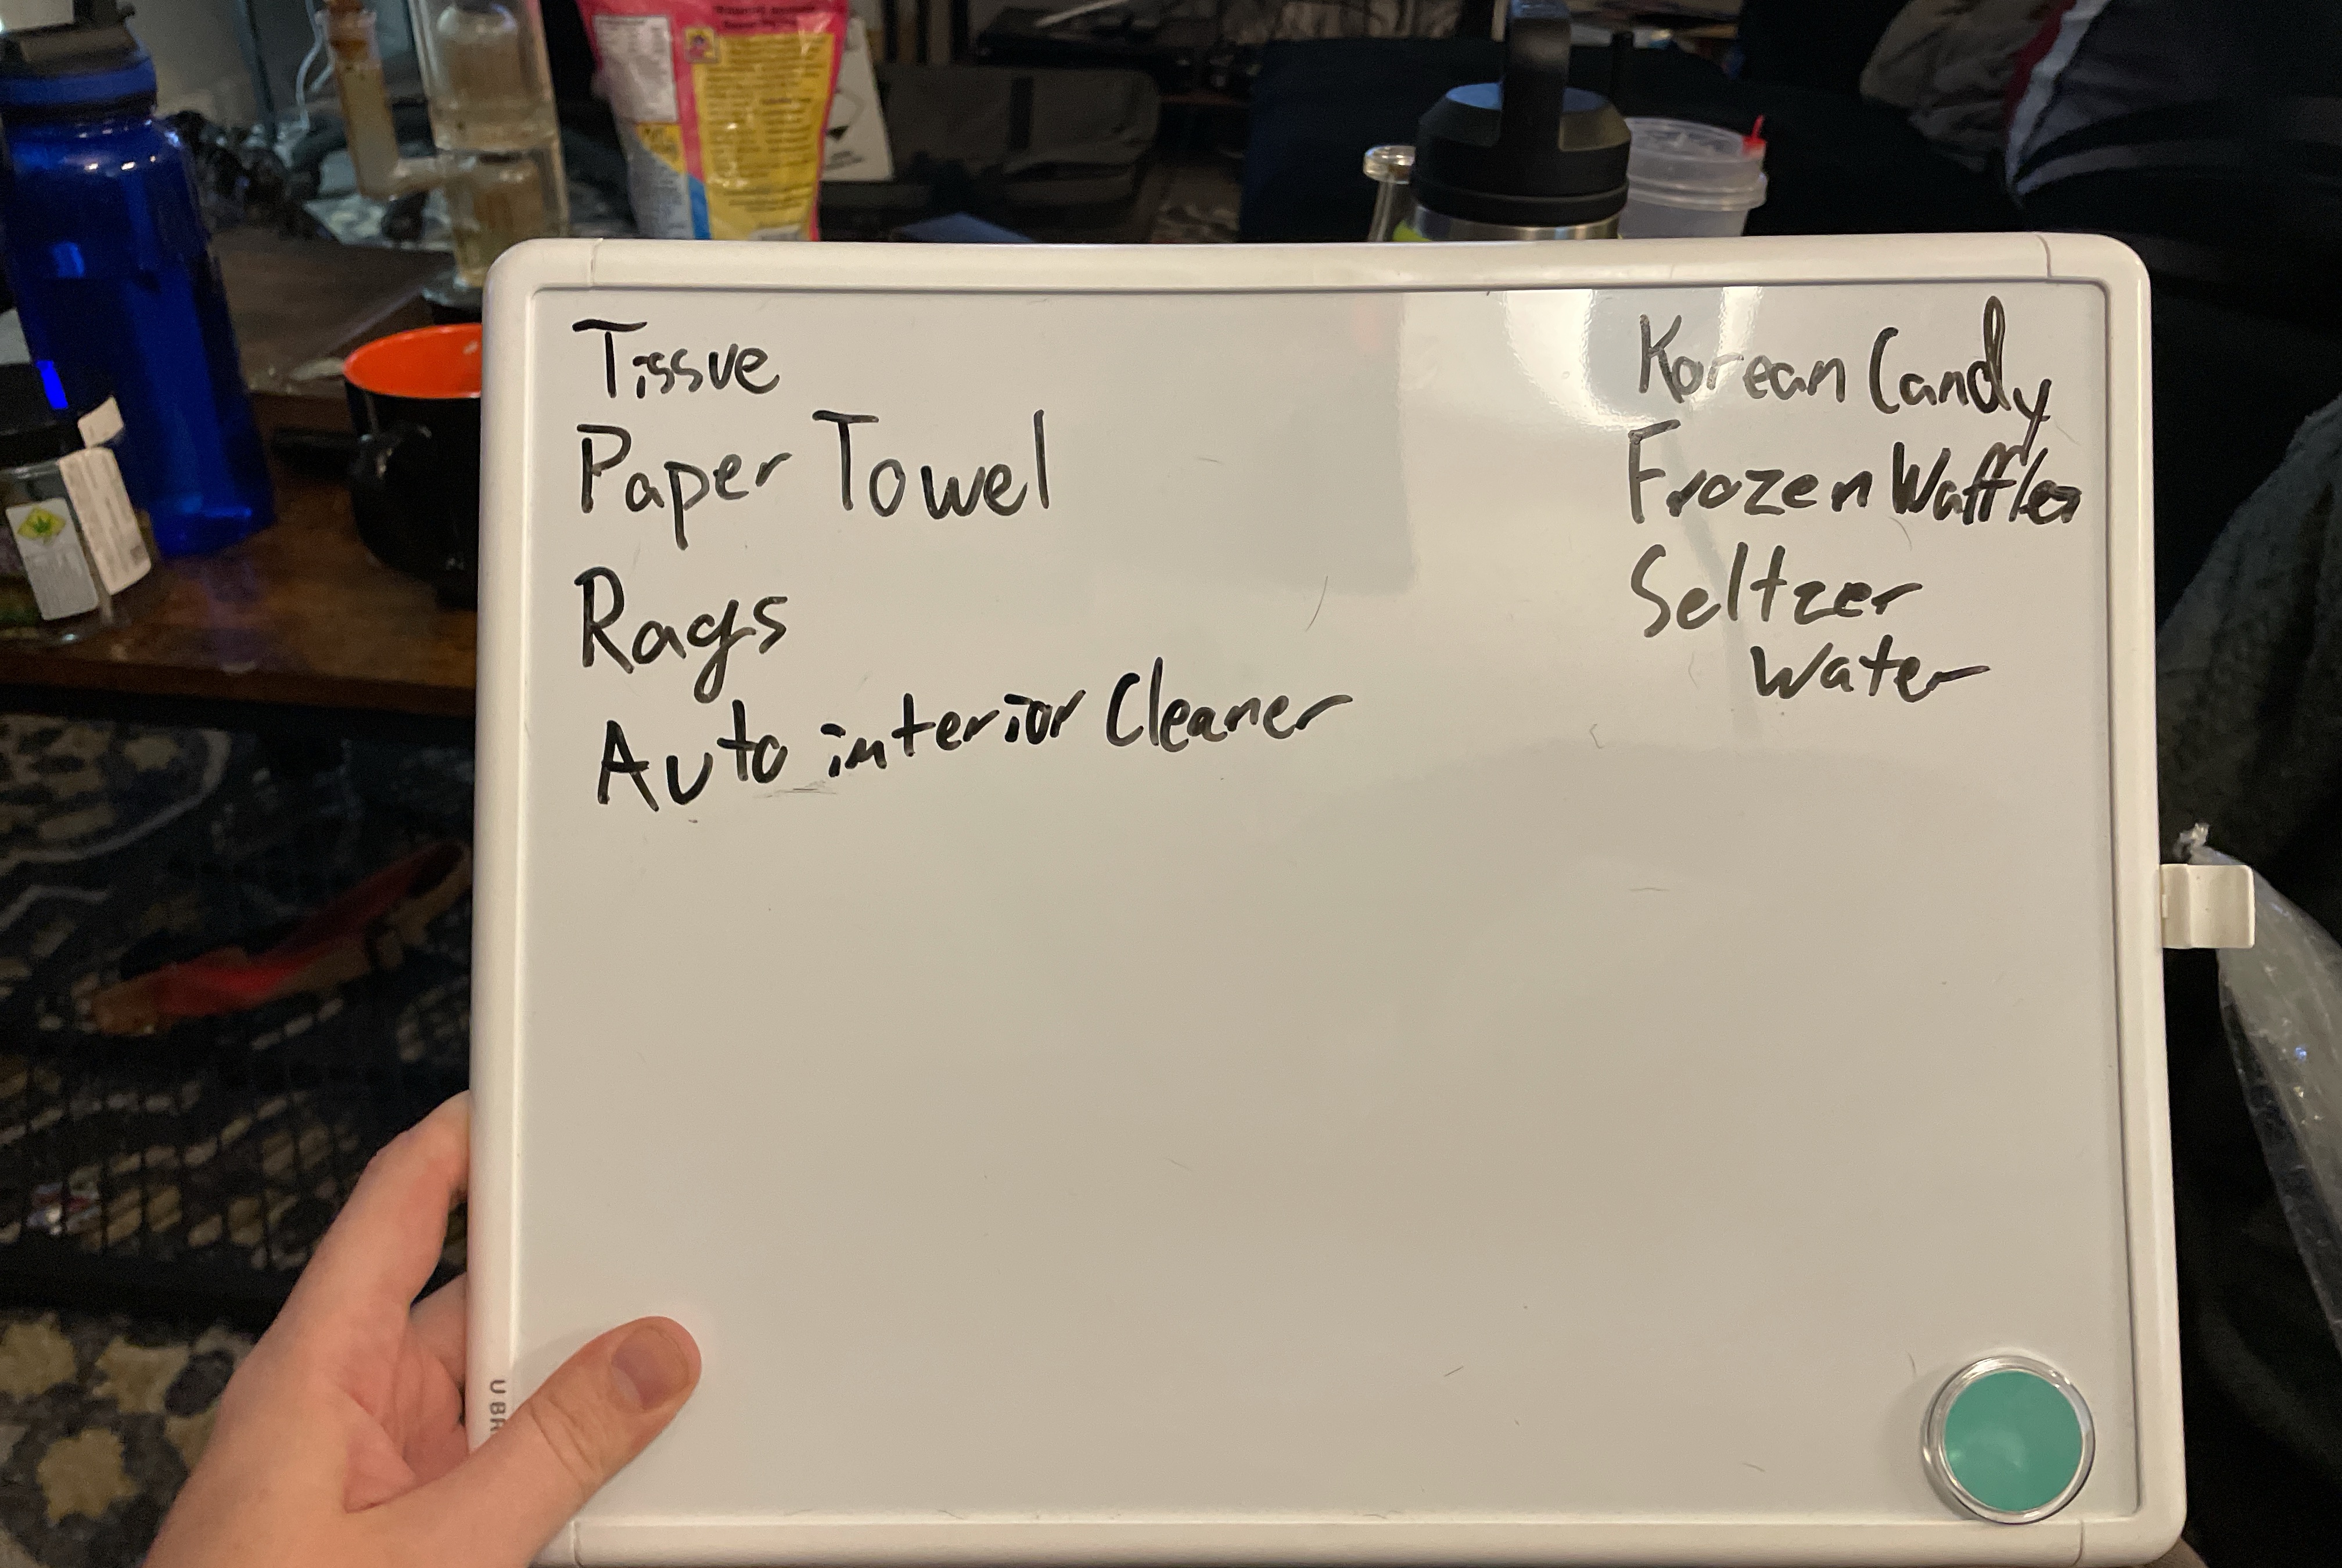 Tissue
Paper Towel
Rags
Auto interior Cleaner
Korean Candy
Frozen Waffles
Seltzer
Water
U BR